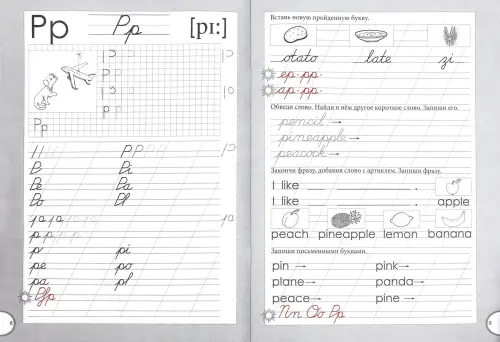 Pp Pp [pɪ:]
Pp
P Pi
Pe Pa
Po Pl
p pi
pe po
pa pl
Вставь новую пройденную букву.
otato late zi
ep-pp-
ap-pp-
Обведи слово. Найди в нём другое короткое слово. Запиши его.
pencil →
pineapple →
peacock →
Закончи фразу, добавив слово с артиклем. Запиши фразу.
I like
I like apple
peach pineapple lemon banana
Запиши письменными буквами.
pin → pink →
plane → panda →
peace → pine →
Nn Oo Pp
8